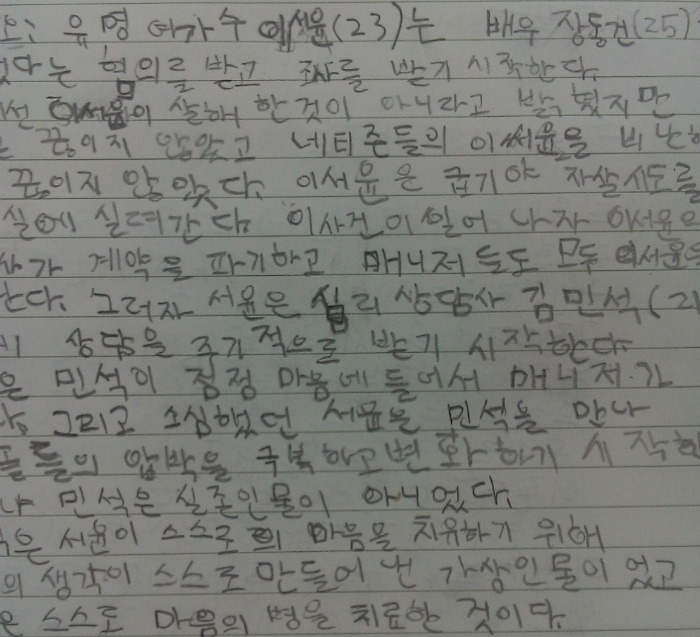 유명 여가수 이서윤(23)는 배우 장동건(25)
다는 혐의를 받고 조사를 받기 시작한다.
이서윤이 살해 한것이 아니라고 밝혀졌지만
끊이지 않았고 네티즌들의 이서윤을 비난이
끊이지 않았다. 이서윤은 급기야 자살시도를
실에 실려간다. 이사건이 일어나자 이서윤의
사가 계약을 파기하고 매니저들도 모두 이서윤을
한다. 그러자 서윤은 심리 상담사 김민석(21
상담을 주기적으로 받기 시작한다.
은 민석이 점점 마음에 들어서 매니저가
다. 그리고 소심했던 서윤은 민석을 만나
들의 압박을 극복하고 변화하기 시작한
나 민석은 실존인물이 아니었다.
은 서윤이 스스로의 마음을 치유하기 위해
의 생각이 스스로 만들어 낸 가상인물이었고
은 스스로 마음의 병을 치료한 것이다.